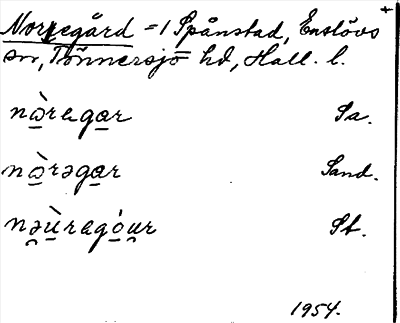 Norregård =1 Spånstad, Enslövs
sn, Tönnersjö hd, Hall. l.
nὼ̱regα̱r Sa.
nὼ̱rəgα̱r Sand.
nəù̱regóu̱r St.
1954.